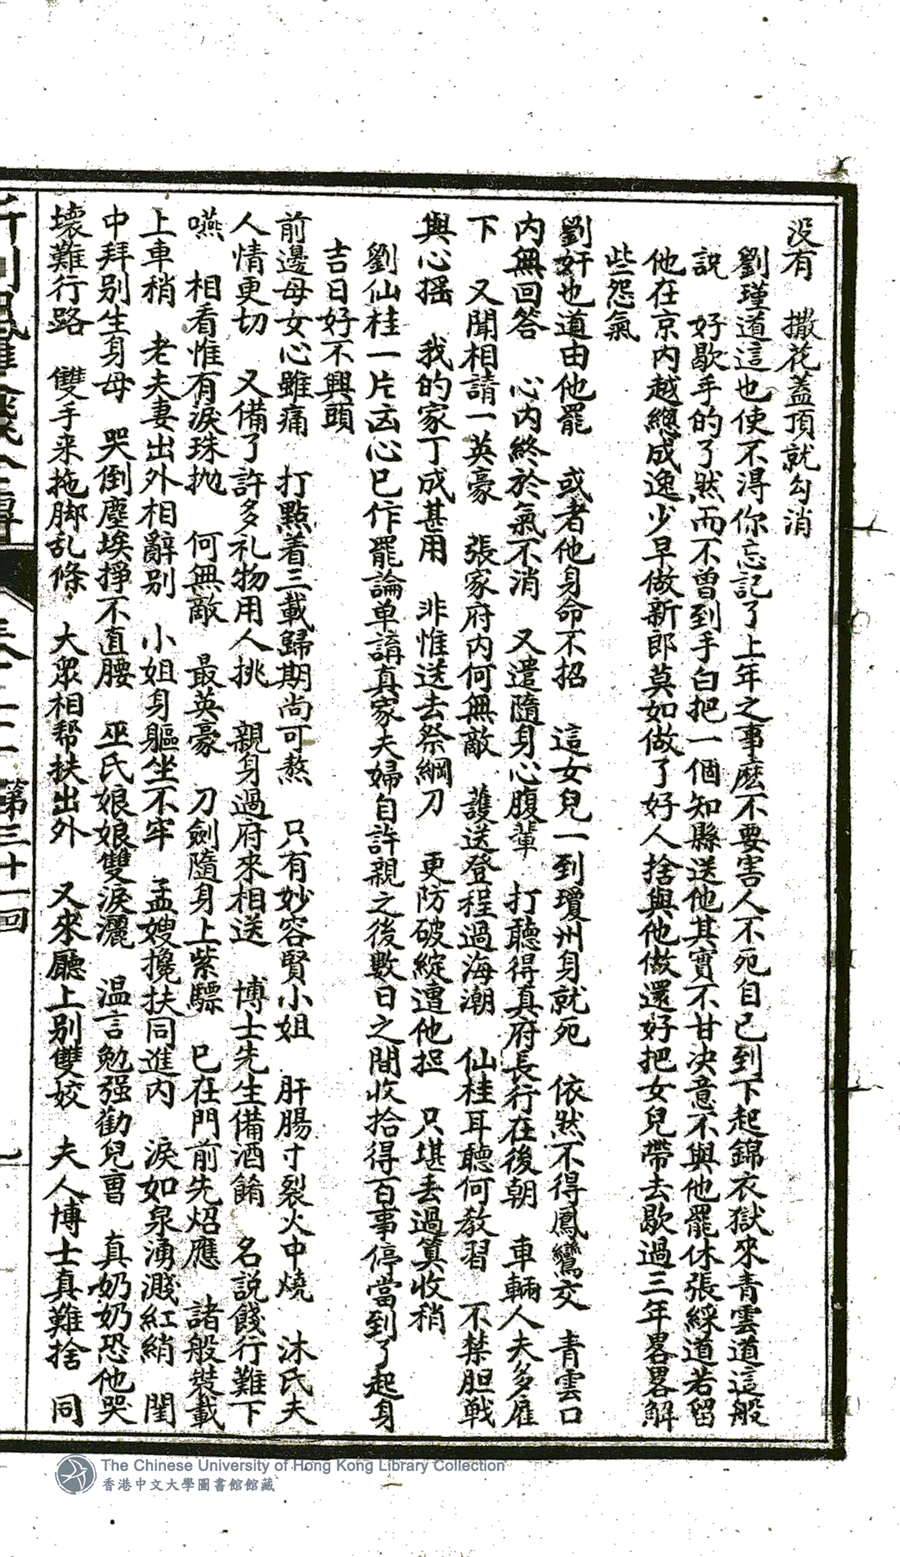 没有　撒花蓋頂就勾消
劉瑾道這也使不得你忘記了上年之事麽不要害人不死自己到下起錦衣獄來青雲道這般
說　好歇手的了然而不曾到手白把一個知縣送他其實不甘决意不與他罷休張綵道若留
他在京内越總成逸少早做新郎莫如做了好人捨與他做還好把女兒帶去歇過三年畧畧解
些怨氣
劉奸也道由他罷　或者他身命不招　這女兒一到瓊州身就死　依然不得鳳鸞交　青雲口
内無回答　心内終於氣不消　又遣隨身心腹輩　打聽得真府長行在後朝　車輛人夫多雇
下　又聞相請一英豪　張家府内何無敵　護送登程過海潮　仙桂耳聽何教習　不禁胆戰
與心摇　我的家丁成甚用　非惟送去祭綱刀　更防破綻遭他捉　只堪丢過算收稍
劉仙桂一片玄心已作罷論单講真家夫婦自許親之後數日之間收拾得百事停當到了起身
吉日好不興頭
前邊母女心雖痛　打點着三載歸期尚可熬　只有妙容賢小姐　肝腸寸裂火中燒　沐氏夫
人情更切　又備了許多礼物用人挑　親身過府來相送　博士先生備酒餚　名説餞行難下
嚥　相看惟有淚珠抛　何無敵　最英豪　刀劍隨身上紫驃　已在門前先炤應　諸般裝載
上車梢　老夫妻出外相辭别　小姐身軀坐不牢　孟嫂攙扶同進内　淚如泉湧濺紅綃　閨
中拜别生身母　哭倒塵埃掙不直腰　巫氏娘娘雙淚灑　温言勉强勸兒曹　真奶奶恐他哭
壞難行路　雙手来拖脚乱條　大眾相帮扶出外　又來廳上别雙姣　夫人博士真難捨　同
第三十一回
The Chinese University of Hong Kong Library Collection
香港中文大學圖書館館藏